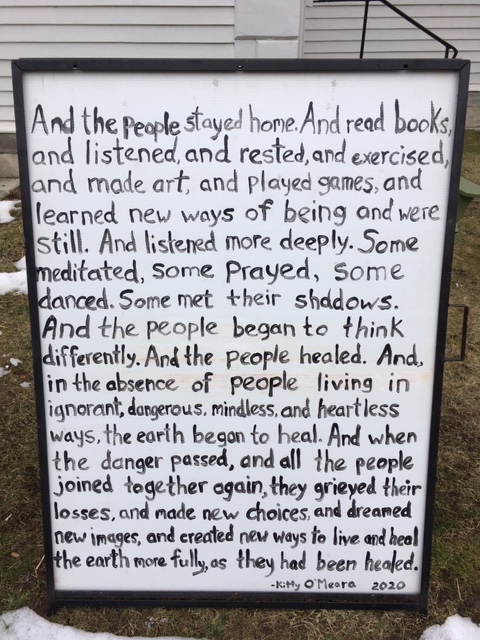 And the people stayed home. And read books,
and listened, and rested, and exercised,
and made art, and played games, and
learned new ways of being and were
still. And listened more deeply. Some
meditated, some prayed, some
danced. Some met their shadows.
And the people began to think
differently. And the people healed. And,
in the absence of people living in
ignorant, dangerous, mindless, and heartless
ways, the earth began to heal. And when
the danger passed, and all the people
joined together again, they grieved their
losses, and made new choices, and dreamed
new images, and created new ways to live and heal
the earth more fully, as they had been healed.
-Kitty O'Meara 2020